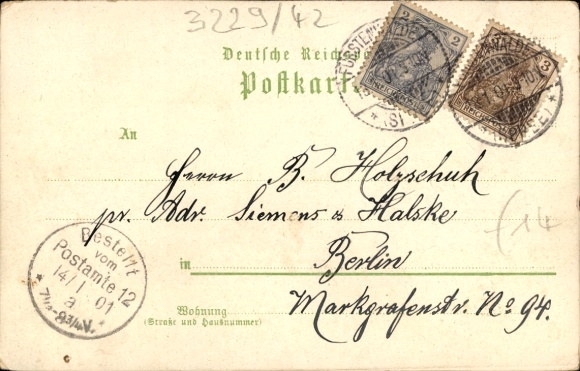 3229/42
2
3
Deutsche Reichs
Postkart
An
Herrn B. Holzschuh
pr. Adr. Siemens & Halske
in Berlin
Wohnung
(Straße und Hausnummer)
Markgrafenstr. No 94.
Bestellt
vom
Postamte 12
14/1 01
a
14